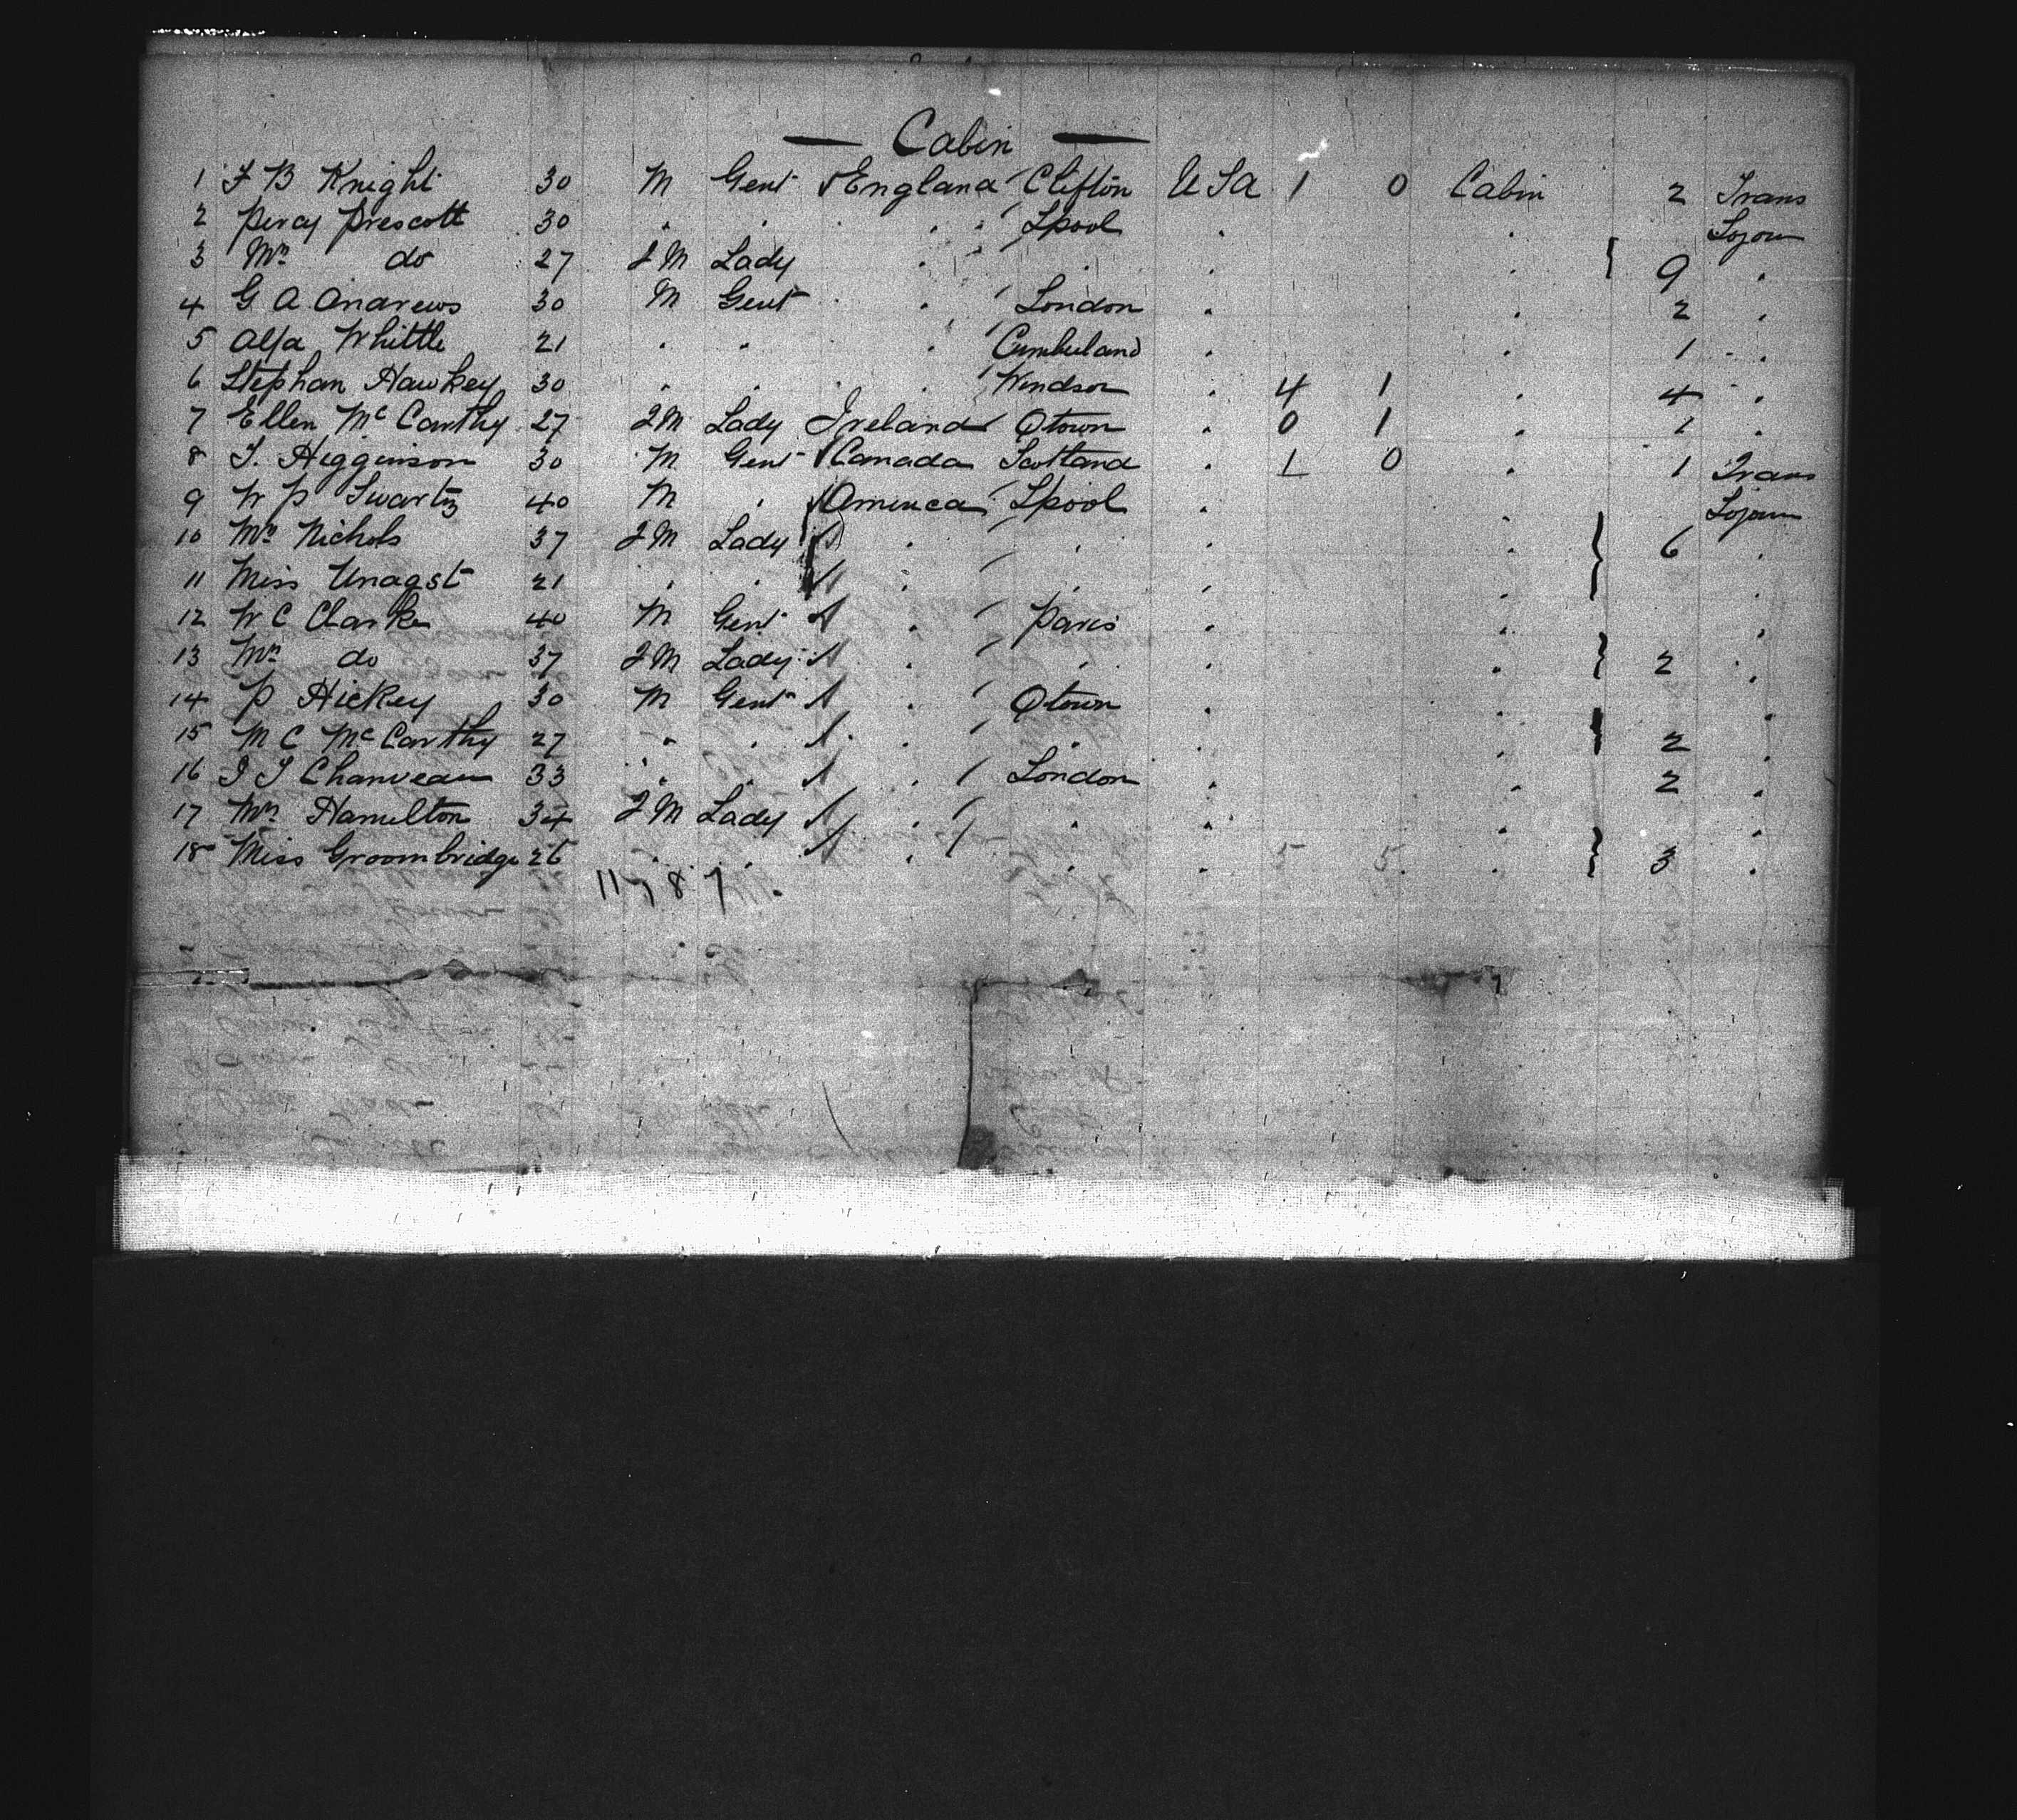 — Cabin —
1 F B Knight 30 M Gent England Clifton USA 1 0 Cabin 2 Trans
2 Percy Prescott 30 . . . . Lpool . . Sojour
3 Mrs do 27 FM Lady . . . . 9 .
4 G A Andrews 30 M Gent . London . . 2 .
5 Alfa Whittle 21 . . . Cumberland . . 1 .
6 Stephan Hawkey 30 . . . . Windsor . 4 1 . 4 .
7 Ellen McCarthy 27 FM Lady Ireland Qtown . 0 1 . 1 .
8 T. Higginson 30 M Gent Canada Scotland . 1 0 . 1 Trans
9 W P Swartz 40 M . America Lpool . . Sojourn
10 Mrs Nichols 37 FM Lady . . . . 6 .
11 Miss Unagst 21 . . . . . . .
12 W C Clarke 40 M Gent . Paris . . .
13 Mrs do 37 FM Lady . . . . 2 .
14 P Hickey 30 M Gent . Qtown . . .
15 M C McCarthy 27 . . . . . . 2 .
16 33 . . . London . . 2 .
17 Mrs Hamilton 34 FM Lady . . . . .
18 Miss Groombridge 26 . . . . . 5 5 . 3 .
11 7 8 7